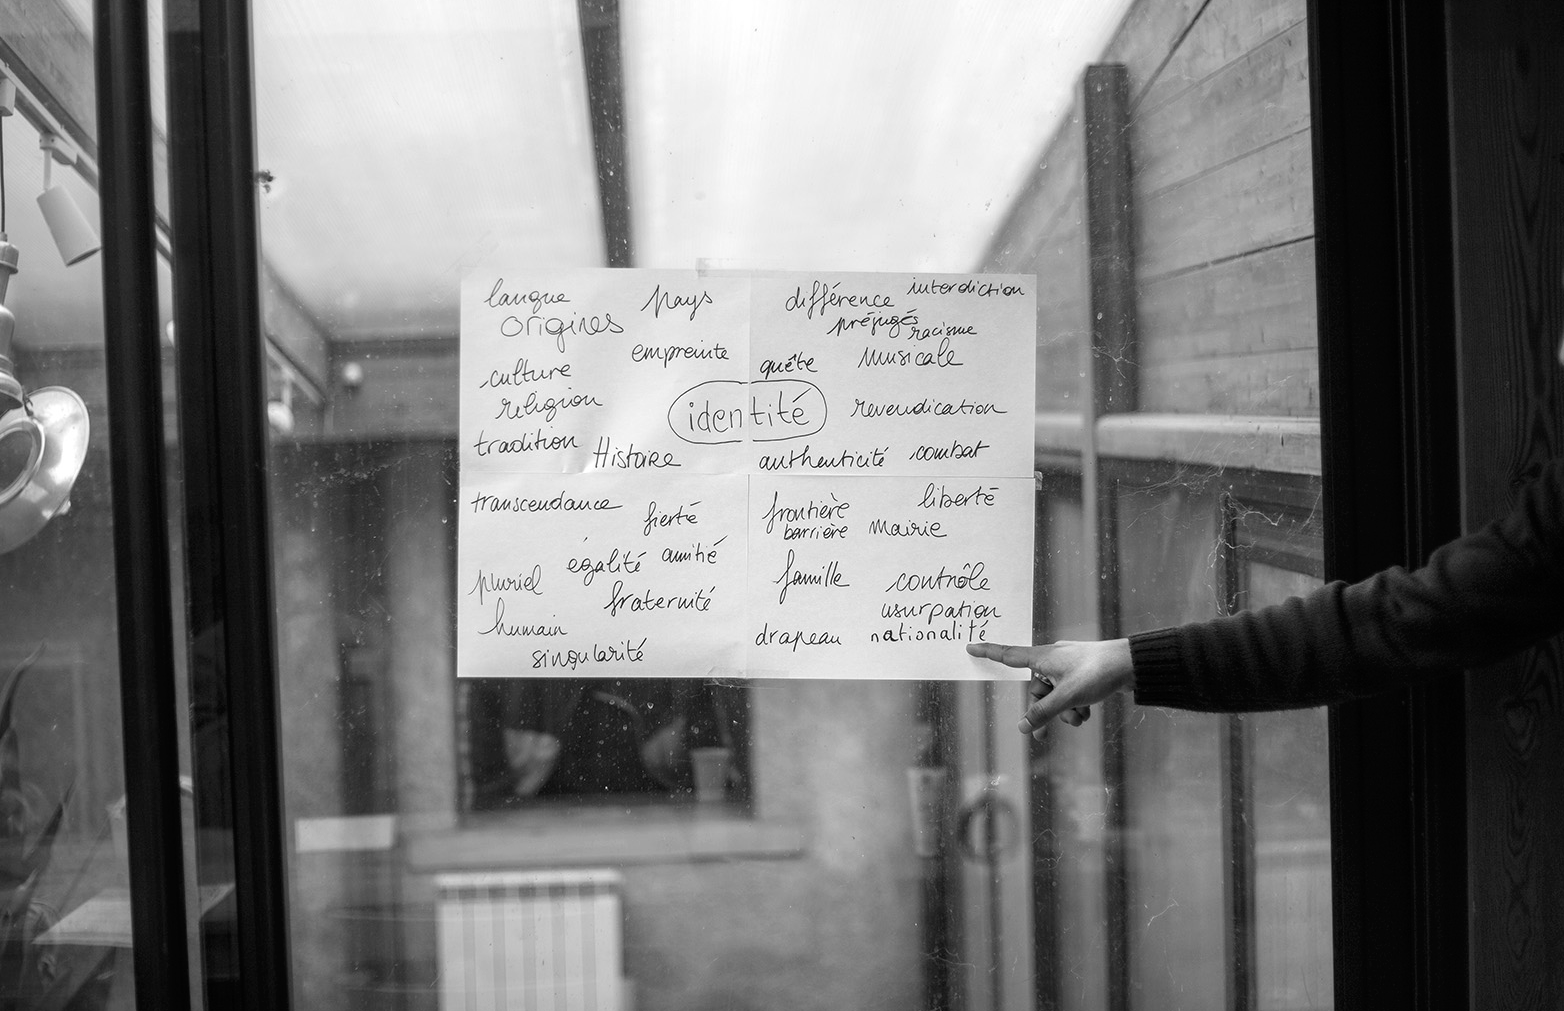 langue
pays
origines
empreinte
culture
religion
tradition
Histoire
différence
interdiction
préjugés
racisme
quête
musicale
identité
revendication
authenticité
combat
transcendance
fierté
égalité
amitié
pluriel
fraternité
humain
singularité
frontière
liberté
barrière
Mairie
famille
contrôle
usurpation
drapeau
nationalité